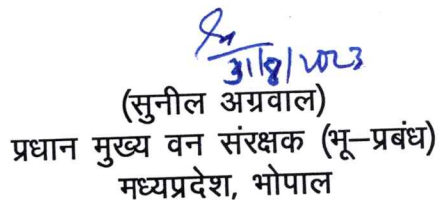 31/8/2023
(सुनील अग्रवाल)
प्रधान मुख्य वन संरक्षक (भू–प्रबंध)
मध्यप्रदेश, भोपाल